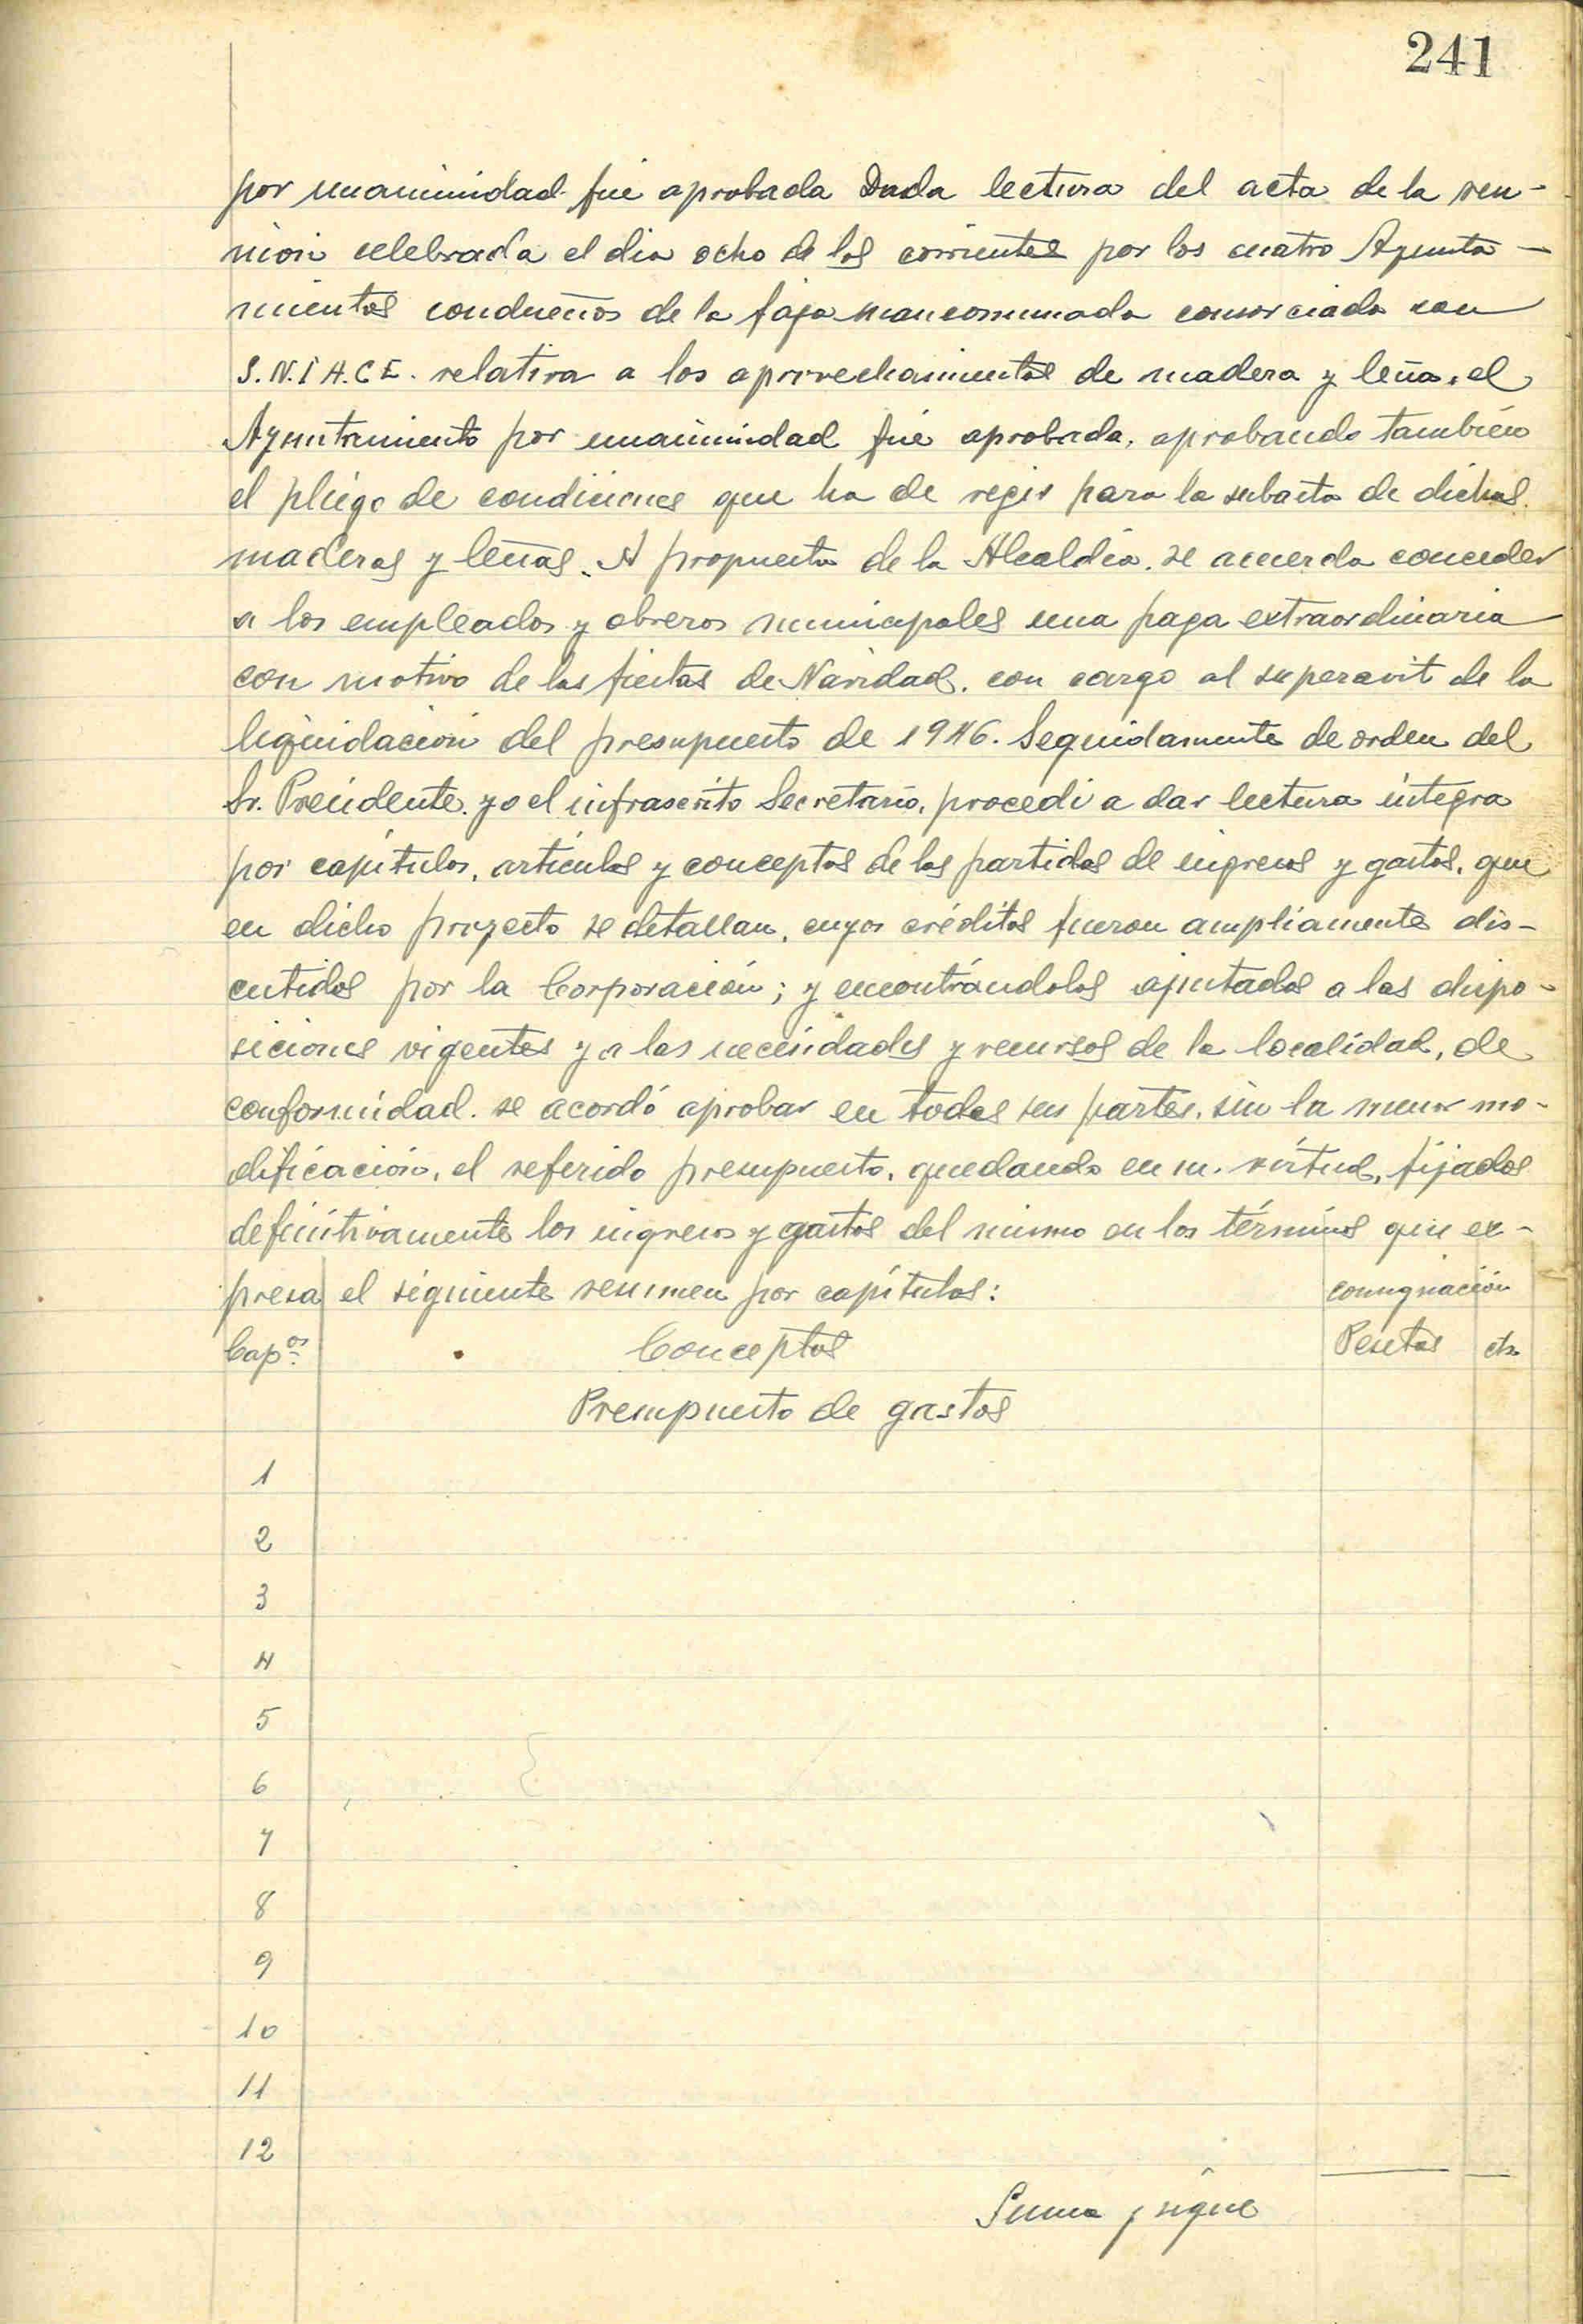 241
por unanimidad fué aprobada Dada lectura del acta de la reu-
nion celebrada el dia ocho de los corrientes por los cuatro Ayunta-
mientos condueños de la faja mancomunada consorciada con
S.N.I.A.C.E. relativa a los aprovechamientos de madera y leña, el
Ayuntamiento por unanimidad fué aprobada, aprobando también
el pliego de condiciones que ha de regir para la subasta de dichas
maderas y leñas. A propuesta de la Alcaldía, se acuerda conceder
a los empleados y obreros municipales una paga extraordinaria
con motivo de las fiestas de Navidad, con cargo al superavit de la
liquidación del presupuesto de 1946. Seguidamente de orden del
Sr. Presidente, yo el infrascrito Secretario, procedí a dar lectura íntegra
por capítulos, artículos y conceptos de las partidas de ingresos y gastos, que
en dicho proyecto se detallan, cuyos créditos fueron ampliamente dis-
cutidos por la Corporación; y encontrándolos ajustados a las dispo-
siciones vigentes y a las necesidades y recursos de la localidad, de
conformidad. se acordó aprobar en todas sus partes, sin la menor mo-
dificación, el referido presupuesto, quedando en su virtud, fijados
definitivamente los ingresos y gastos del mismo en los términos que ex-
presa el siguiente resumen por capítulos: consignación
Cap.os Conceptos Pesetas cts.
Presupuesto de gastos
1
2
3
4
5
6
7
8
9
10
11
12
Suma y sigue